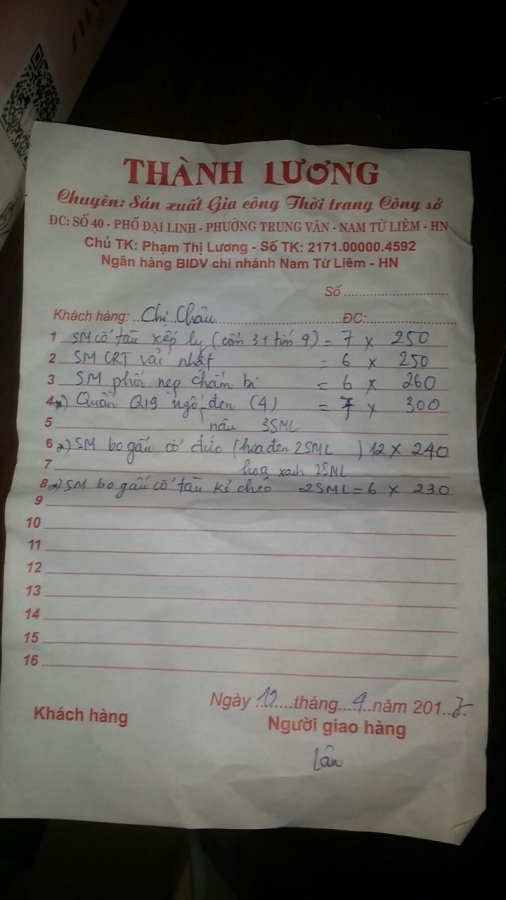 THÀNH LƯƠNG
Chuyên: Sản xuất Gia công Thời trang Công sở
ĐC: SỐ 40 - PHỐ ĐẠI LINH - PHƯỜNG TRUNG VĂN - NAM TỪ LIÊM - HN
Chủ TK: Phạm Thị Lương - Số TK: 2171.00000.4592
Ngân hàng BIDV chi nhánh Nam Từ Liêm - HN
Số
Khách hàng: Chị Châu ĐC:
1 SM cổ tàu xếp ly = 7 x 250
2 SM CRT vát nhất = 6 x 250
3 SM phối nẹp chấm bi = 6 x 260
4 Quần Q19 ngố đen (4) = 7 x 300
5 nâu 3SML
6 2) SM bo gấu cổ đức (hoa đen 2SML ) 12 x 240
7 hoa xanh 2SML
8 SM bo gấu cổ tàu kẻ chéo 2SML = 6 x 230
9
10
11
12
13
14
15
16
Ngày 12 tháng 4 năm 2017
Khách hàng Người giao hàng
Lân